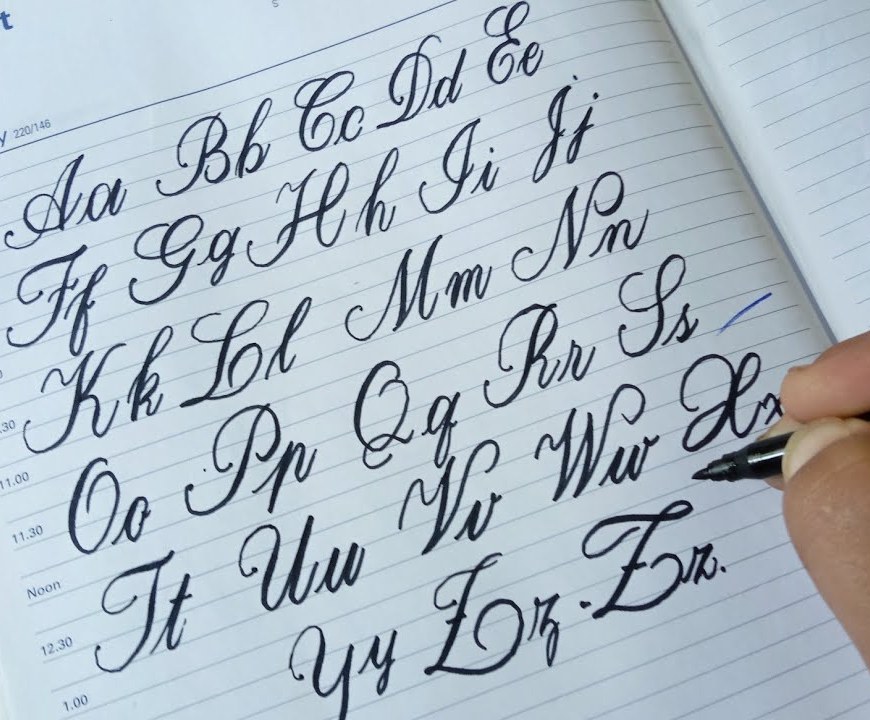 t
y 220/146
Aa Bb Cc Dd Ee
Ff Gg Hh Ii Jj
Kk Ll Mm Nn
.30
Oo Pp Qq Rr Ss
11.00
11.30
Tt Uu Vv Ww Xx
Noon
12.30
Yy Zz . Zz.
1.00